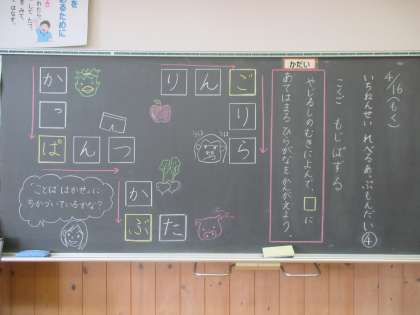 4/16(もく)
いちねんせい れべるあっぷもんだい④
こくご もじぱずる
かだい
やじるしのむきによんで、□に
あてはまるひらがなをかんがえよう。
りんご
り
ら
か
っ
ぱんつ
か
ぶた
"ことば はかせ"に
ちかづいているかな?
を
ために